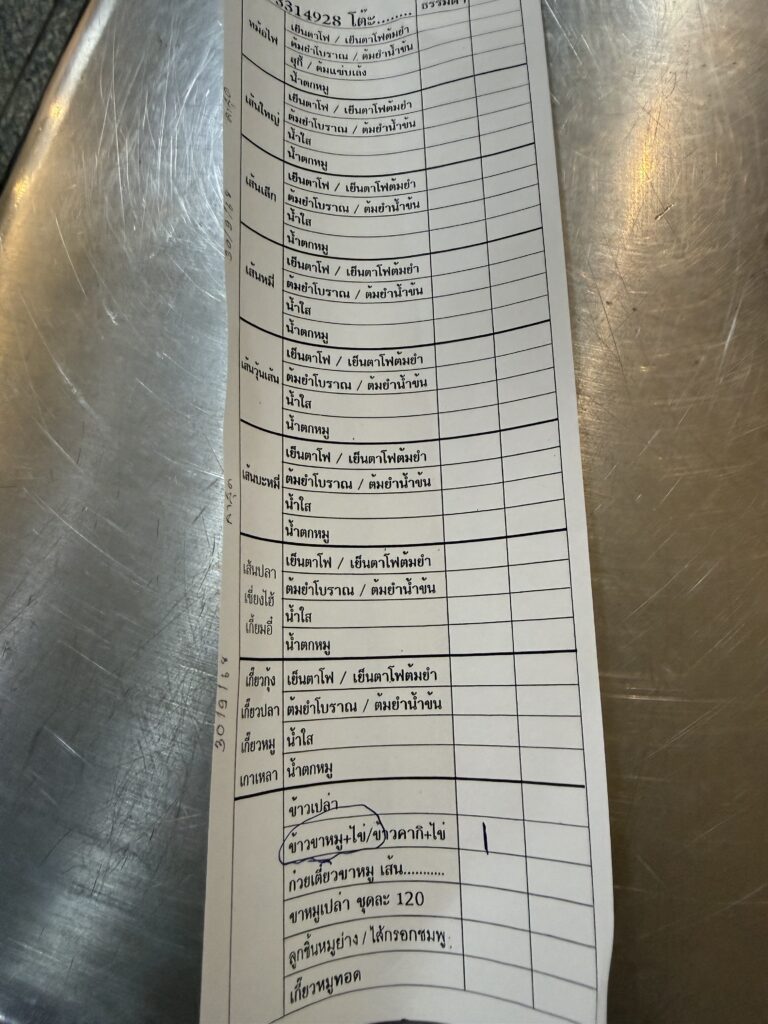 3314928 โต๊ะ........ ธรรมดา
หม้อไฟ
เย็นตาโฟ / เย็นตาโฟต้มยำ
ต้มยำโบราณ / ต้มยำน้ำข้น
สุกี้ / ต้มแซ่บเล้ง
น้ำตกหมู
เส้นใหญ่
เย็นตาโฟ / เย็นตาโฟต้มยำ
ต้มยำโบราณ / ต้มยำน้ำข้น
น้ำใส
น้ำตกหมู
เส้นเล็ก
เย็นตาโฟ / เย็นตาโฟต้มยำ
ต้มยำโบราณ / ต้มยำน้ำข้น
น้ำใส
น้ำตกหมู
เส้นหมี่
เย็นตาโฟ / เย็นตาโฟต้มยำ
ต้มยำโบราณ / ต้มยำน้ำข้น
น้ำใส
น้ำตกหมู
เส้นวุ้นเส้น
เย็นตาโฟ / เย็นตาโฟต้มยำ
ต้มยำโบราณ / ต้มยำน้ำข้น
น้ำใส
น้ำตกหมู
เส้นบะหมี่
เย็นตาโฟ / เย็นตาโฟต้มยำ
ต้มยำโบราณ / ต้มยำน้ำข้น
น้ำใส
น้ำตกหมู
เส้นปลา
เซี่ยงไฮ้
เกี้ยมอี๋
เย็นตาโฟ / เย็นตาโฟต้มยำ
ต้มยำโบราณ / ต้มยำน้ำข้น
น้ำใส
น้ำตกหมู
เกี๊ยวกุ้ง
เกี๊ยวปลา
เกี๊ยวหมู
เกาเหลา
เย็นตาโฟ / เย็นตาโฟต้มยำ
ต้มยำโบราณ / ต้มยำน้ำข้น
น้ำใส
น้ำตกหมู
ข้าวเปล่า
ข้าวขาหมู+ไข่/ข้าวคากิ+ไข่ 1
ก๋วยเตี๋ยวขาหมู เส้น...........
ขาหมูเปล่า ชุดละ 120
ลูกชิ้นหมูย่าง / ไส้กรอกชมพู
เกี๊ยวหมูทอด
30/9/68
30/9/68